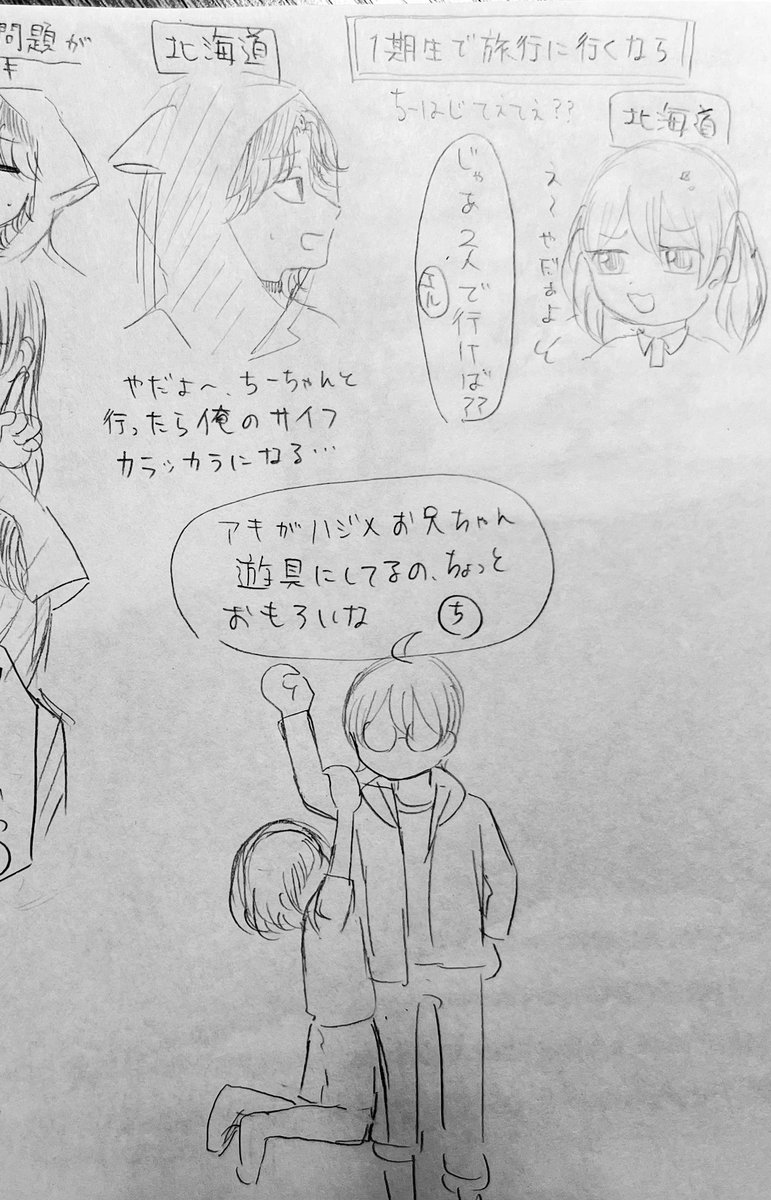 1期生で旅行に行くなら
ちーはじてぇてぇ??
北海道
え〜やだぁよぉ
じゃあ2人で行けば??
エル
北海道
やだよ〜、ちーちゃんと
行ったら俺のサイフ
カラッカラになる…
問題が
キ
アキがハジメお兄ちゃん
遊具にしてるの、ちょっと
おもろいな
ち